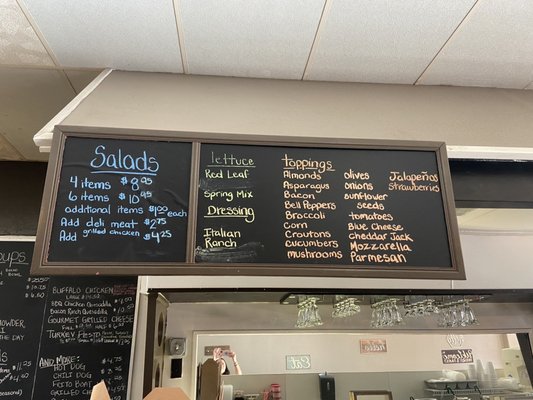 Salads
4 items $8.95
6 items $10.95
additional items $1.00 each
Add deli meat $2.75
Add grilled chicken $4.25
lettuce
Red Leaf
Spring Mix
Dressing
Italian
Ranch
toppings
Almonds
Asparagus
Bacon
Bell Peppers
Broccoli
Corn
Croutons
cucumbers
mushrooms
olives
onions
sunflower
seeds
tomatoes
Blue Cheese
Cheddar Jack
Mozzarella
Parmesan
Jalapeños
strawberries
BUFFALO CHICKEN
BBQ Chicken Quesadilla
Bacon Ranch Quesadilla
GOURMET GRILLED CHEESE
Turkey Pesto
AND MORE:
HOT DOG
CHILI DOG
Frito Bo
GRILLED CH
Eat